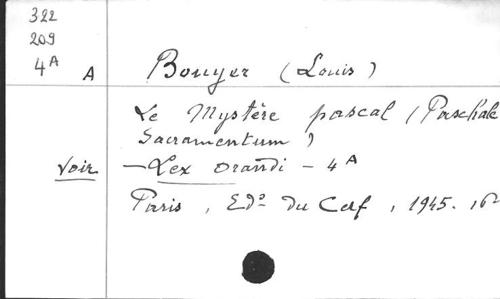 322
209
4A A
Bouyer (Louis)
Le Mystère pascal (Paschale
Sacramentum)
Voir — Lex Orandi - 4A
Paris, Edº du Cerf, 1945. 16º